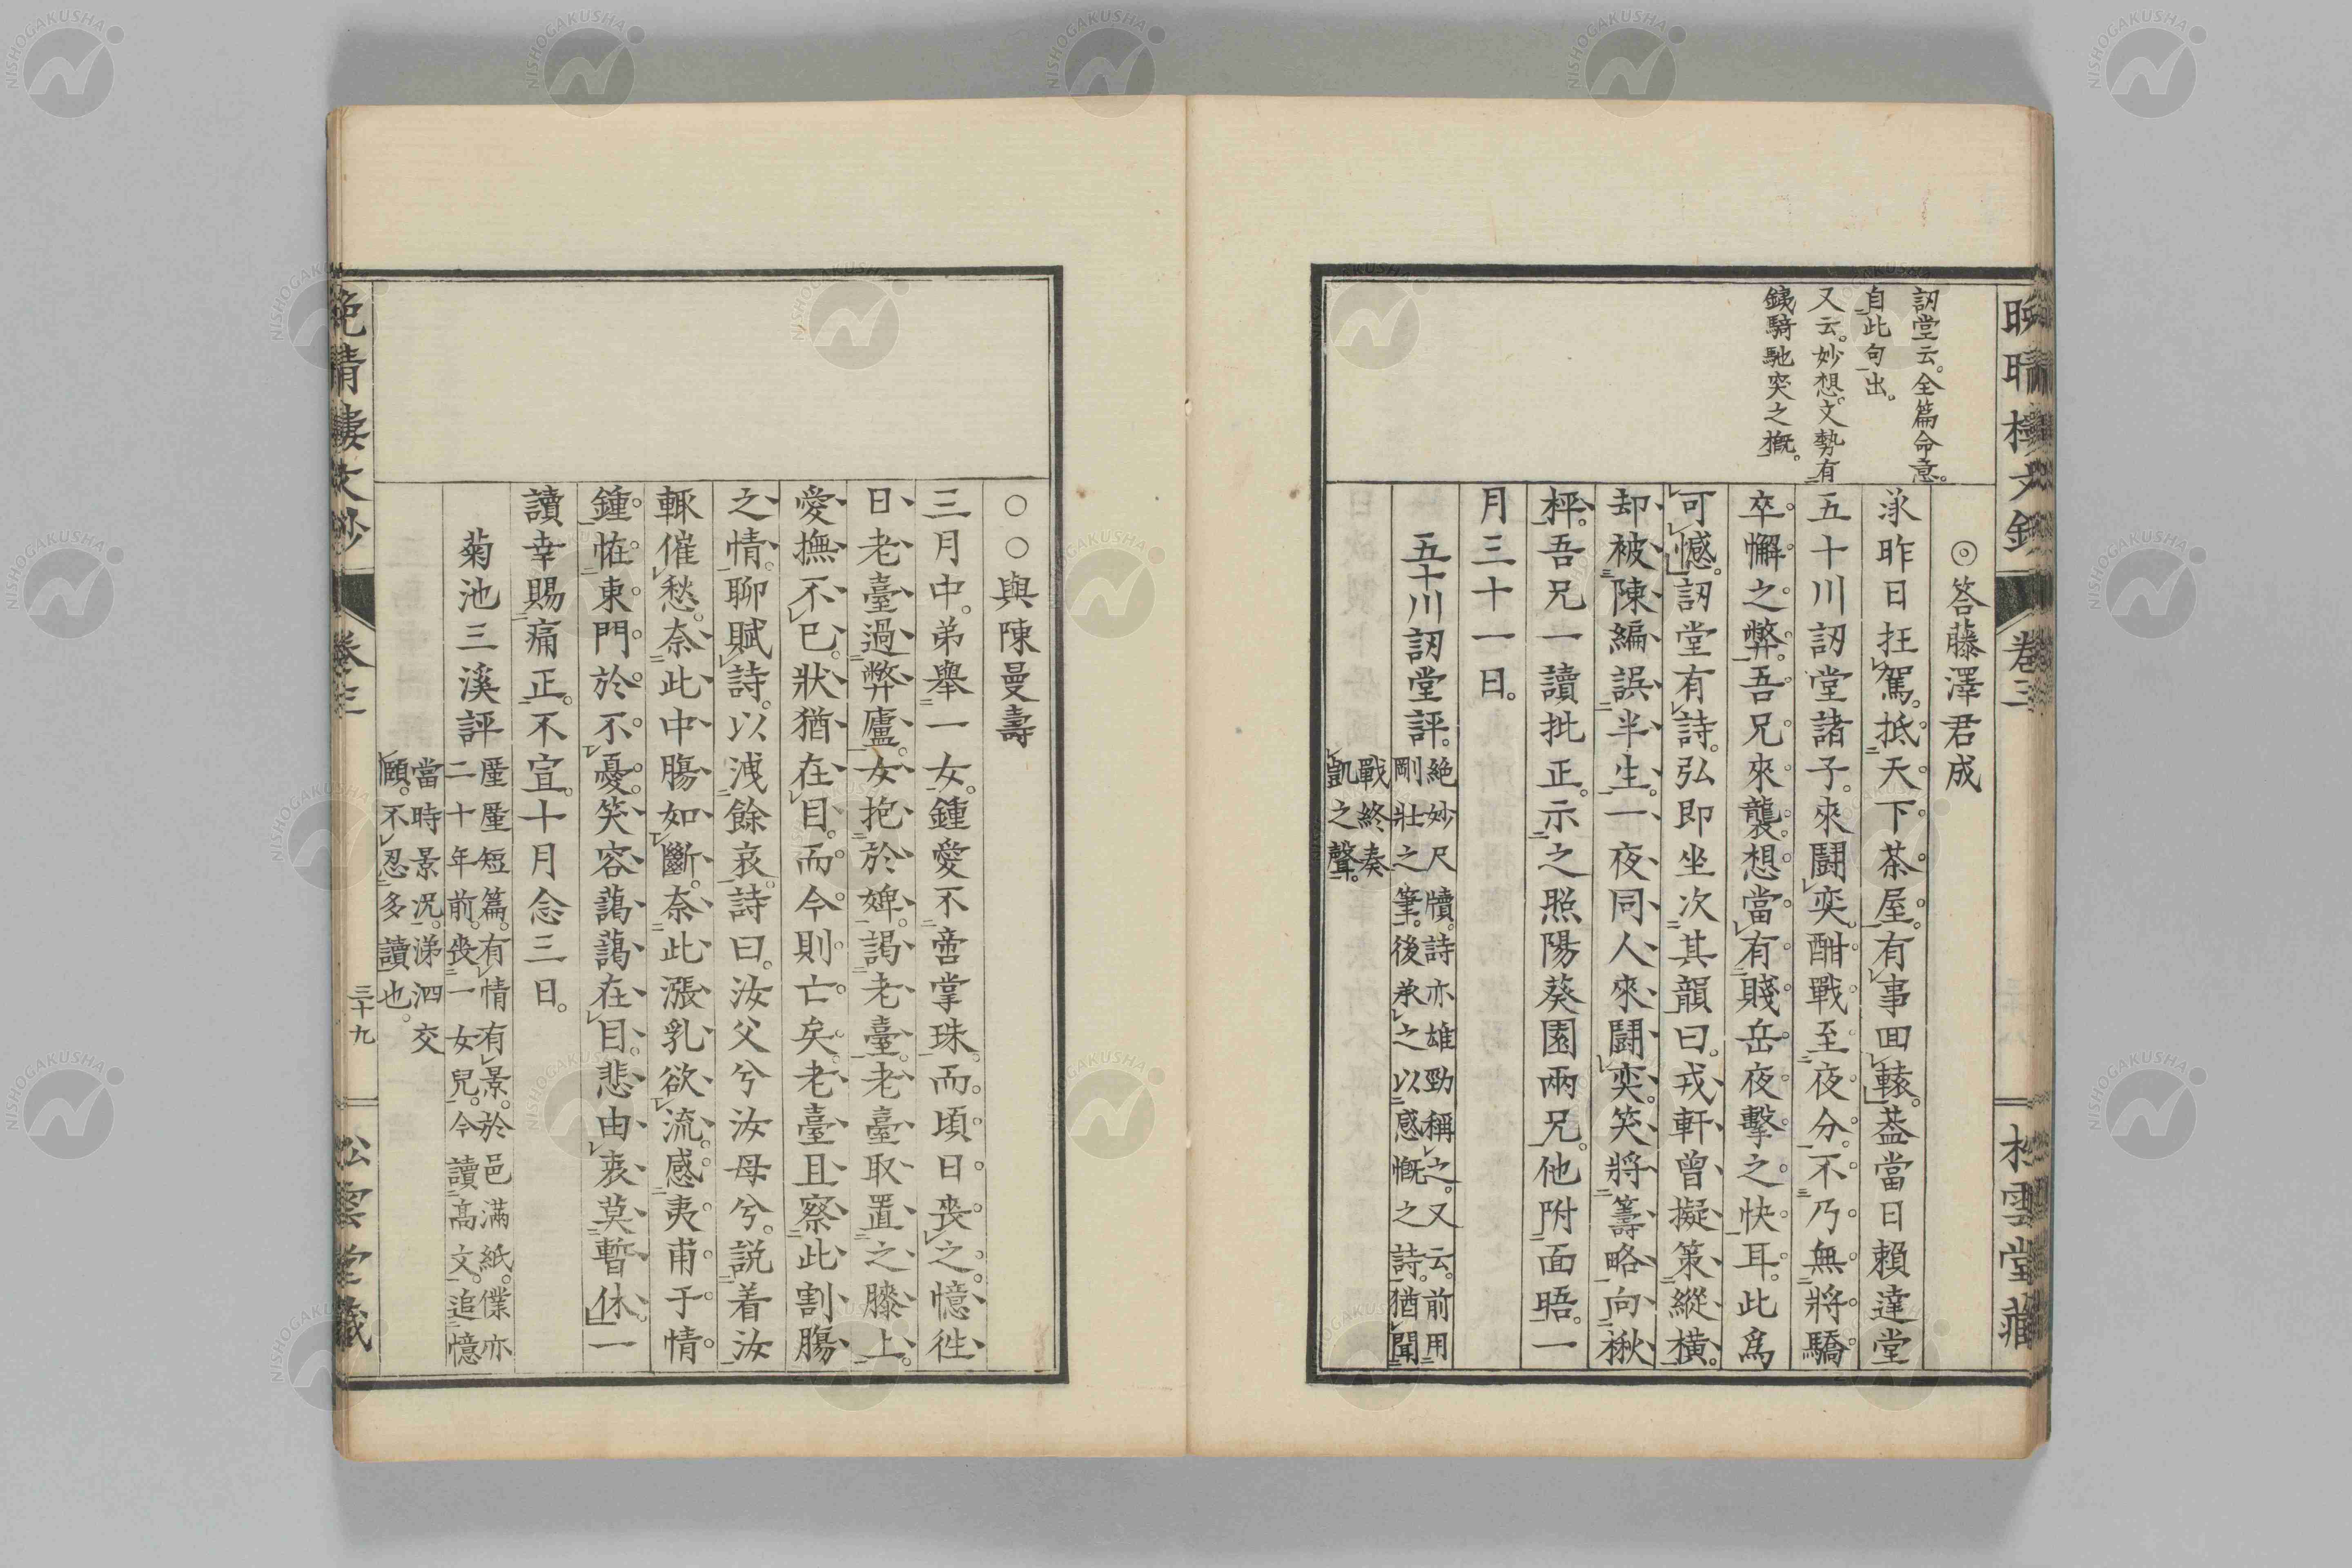 訒堂云。全篇命意。
自此句出。
又云。妙想。文勢有
銕騎馳突之槪。
◎答藤澤君成
承昨日抂駕。抵天下茶屋。有事回轅。蓋當日賴達堂
五十川訒堂諸子。來鬪奕。酣戰至夜分。不乃無將驕
卒懈之弊。吾兄來襲。想當有賤岳夜擊之快耳。此爲
可憾。訒堂有詩。弘即坐次其韻曰。戎軒曾擬策縱橫。
却被陳編誤半生。一夜同人來鬪奕。笑將籌略向楸
枰。吾兄一讀批正。示之照陽葵園兩兄。他附面晤。一
月三十一日。
五十川訒堂評。
絶妙尺牘。詩亦雄勁稱之。又云。前用
剛壯之筆。後承之以感慨之詩。猶聞
戰終奏
凱之聲。
卷三
松雲堂藏
○○與陳曼壽
三月中。弟舉一女。鍾愛不啻掌珠。而頃日喪之。憶往
日老臺過弊廬。女抱於婢。謁老臺。老臺取置之膝上。
愛撫不已。狀猶在目。而今則亡矣。老臺且察此割腸
之情。聊賦詩。以洩餘哀。詩曰。汝父兮汝母兮。説着汝
輙催愁。奈此中腸如斷。奈此漲乳欲流。感夷甫于情
鍾。恠東門於不憂。笑容藹藹在目。悲由衷莫暫休。一
讀幸賜痛正。不宣。十月念三日。
菊池三溪評
厪厪短篇。有情有景。於邑滿紙。僕亦
二十年前。喪一女兒。今讀高文。追憶
當時景况。涕泗交
頤。不忍多讀也。
晩晴樓文鈔
卷三
三十九
松雲堂藏